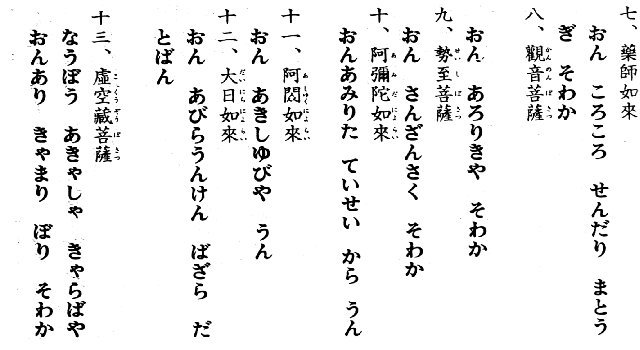 七、藥師如來
おん　ころころ　せんだり　まとう
ぎ　そわか
八、觀音菩薩
おん　あろりきや　そわか
九、勢至菩薩
おん　さんざんさく　そわか
十、阿彌陀如來
おんあみりた　ていせい　から　うん
十一、阿閦如來
おん　あきしゆびや　うん
十二、大日如來
おん　あびらうんけん　ばざら　だ
とばん
十三、虛空藏菩薩
なうぼう　あきゃしゃ　きゃらばや
おんあり　きゃまり　ぼり　そわか